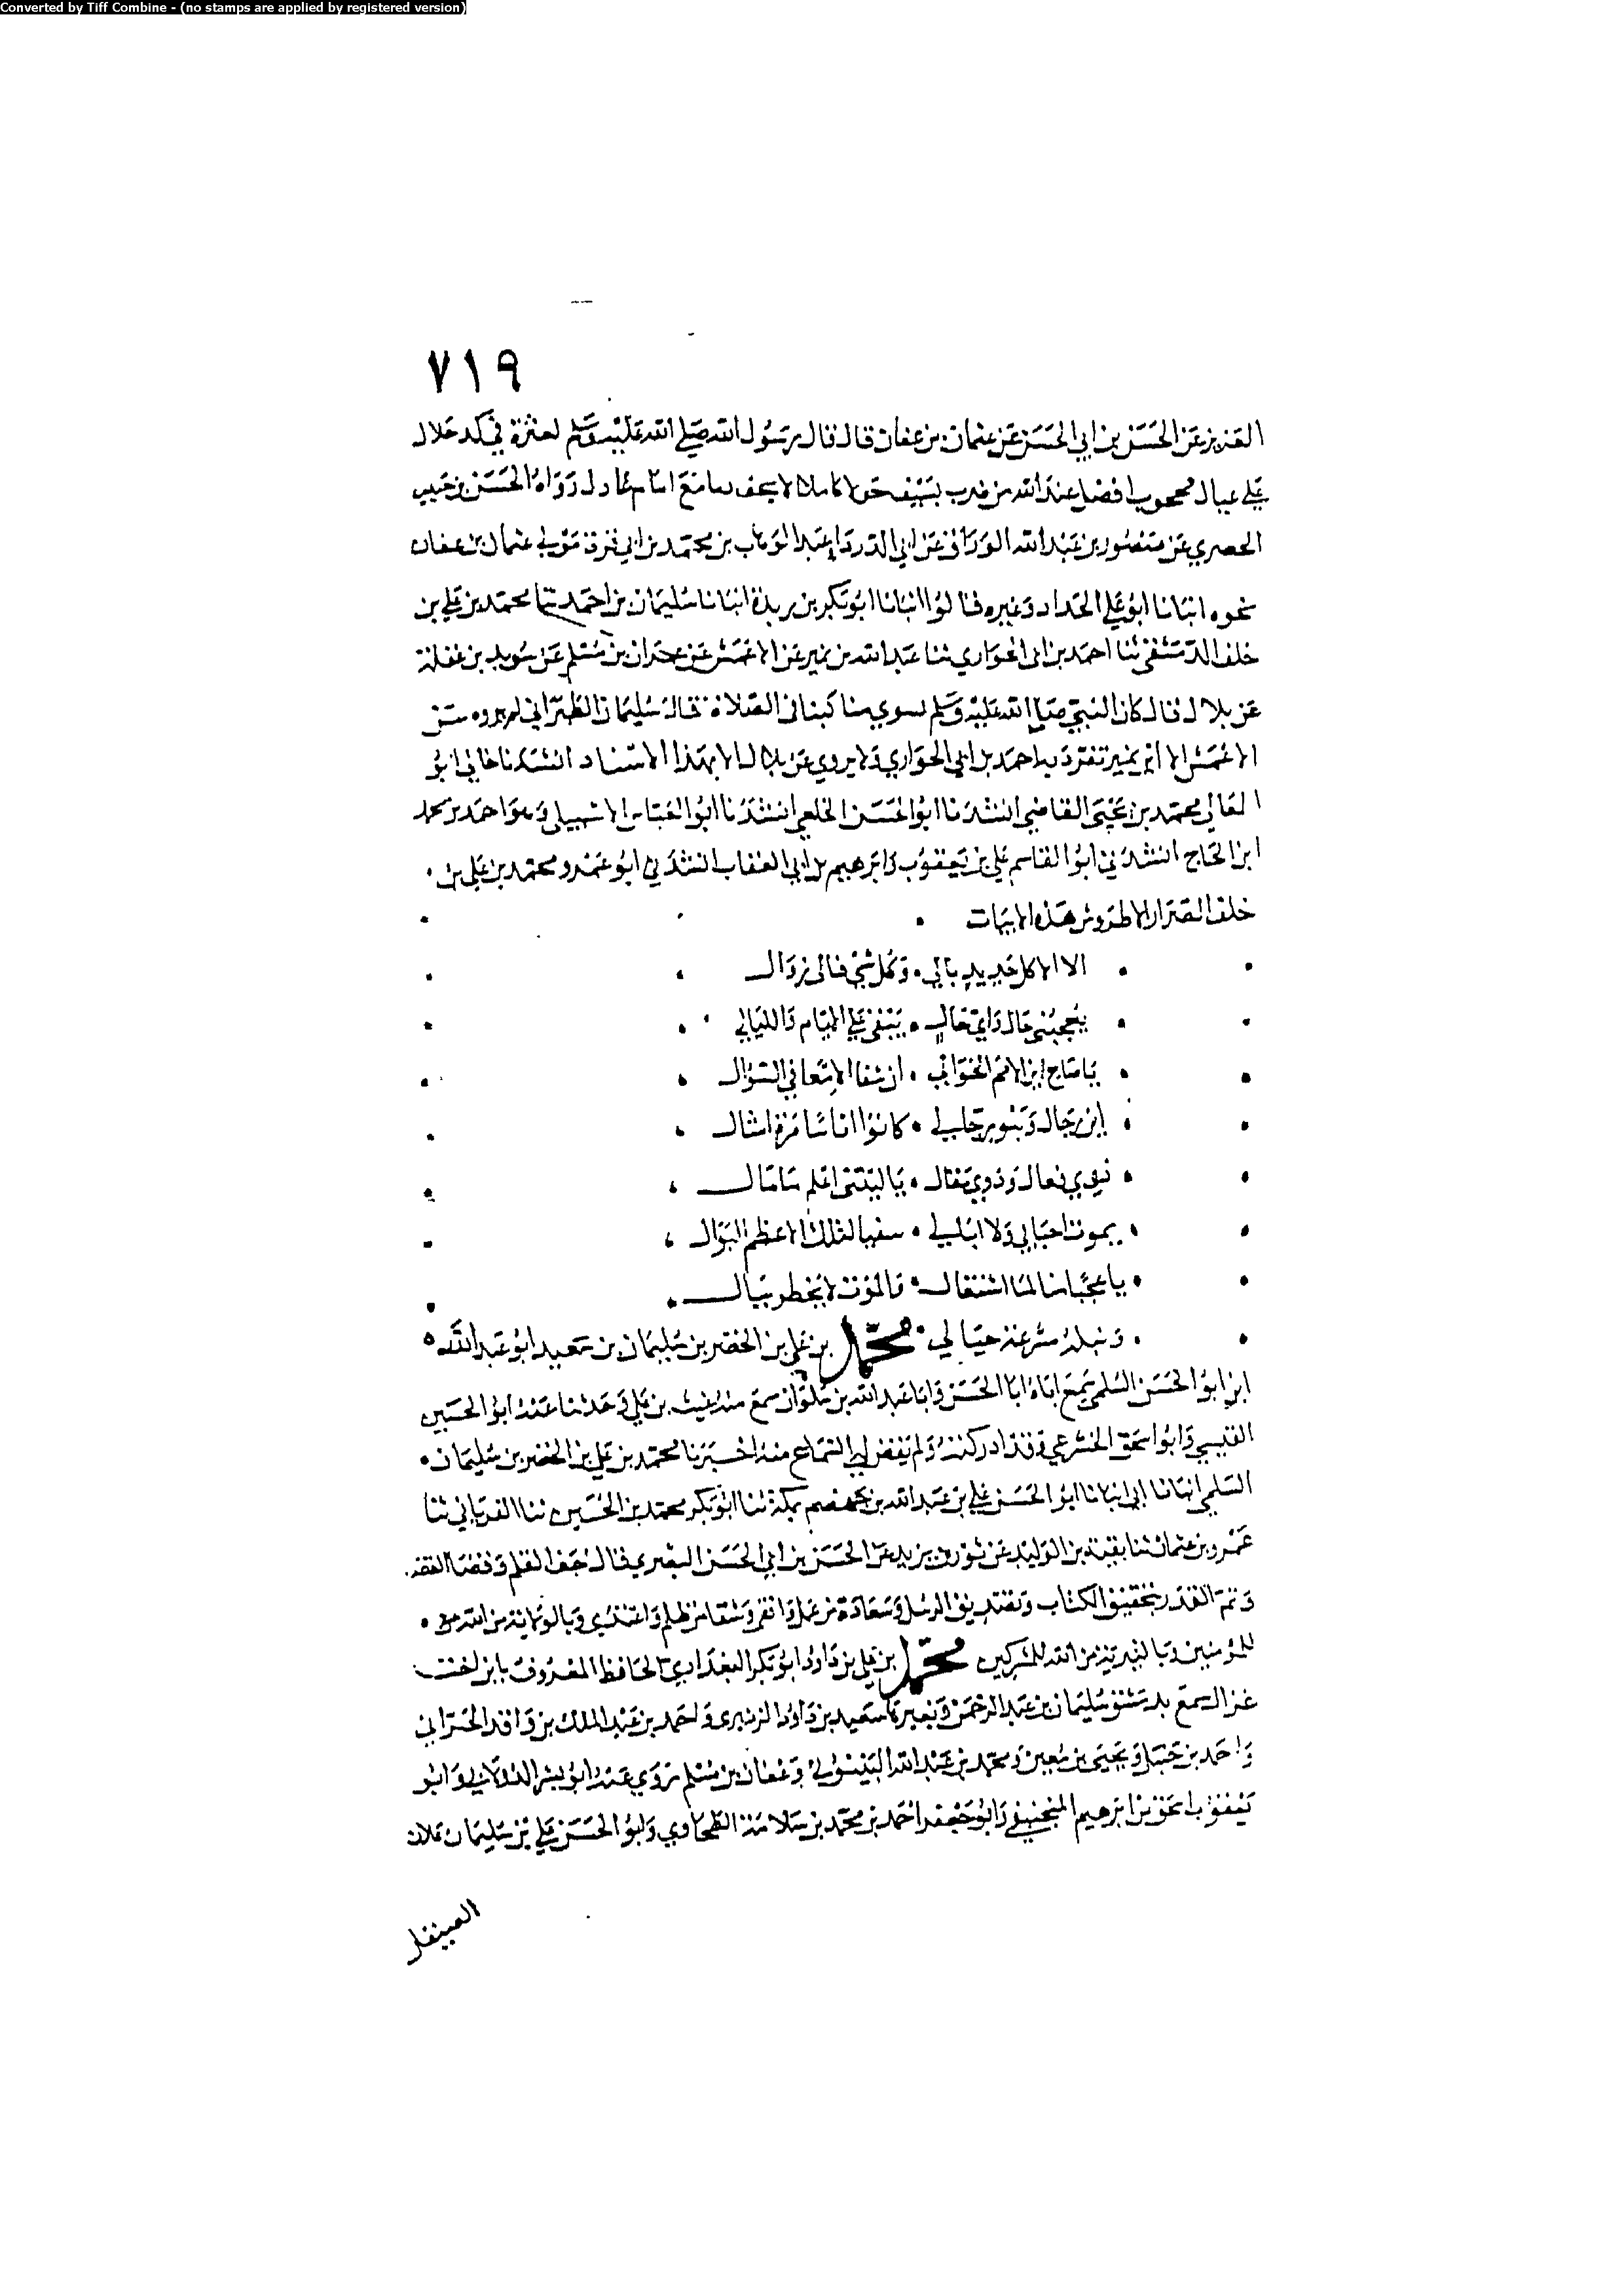 Converted by Tiff Combine - (no stamps are applied by registered version)
٧١٩
العزيز عن الحسن بن ابي الحسن عن عثمان بن عفان قال قال رسول الله صلى الله عليه وسلم لعثرة في كد حلال
على عيال محجوب افضل عند الله من ضرب بسيف حولا كاملا لا يجف دما مع امام عادل رواه الحسن بن حبيب
الحصري عن منصور بن عبد الله الوراق عن ابي الدرداء عبد الوهاب بن محمد بن ابي قرة مولى عثمان بن عفان
نحوه انبانا ابو علي الحداد وغيره قالوا انبانا ابو بكر بن ريذة انبانا سليمان بن احمد ثنا محمد بن علي بن
خلف الدمشقي ثنا احمد بن ابي الحواري ثنا عبد الله بن نمير عن الاعمش عن عمران بن مسلم عن سويد بن غفلة
عن بلال قال كان النبي صلى الله عليه وسلم يسوي مناكبنا في الصلاة قال سليمان الطبراني لم يروه عن
الاعمش الا ابن نمير تفرد به احمد بن ابي الحواري ولا يروى عن بلال الا بهذا الاسناد انشدنا خالي ابو
المعالي محمد بن يحيى القاضي انشدنا ابو الحسن الخلعي انشدنا ابو العباس الاشبيلي وهو احمد بن محمد
ابن الحاج انشدني ابو القاسم علي بن يعقوب وابرهيم بن ابي العقاب انشدني ابو عمرو محمد بن علي بن
خلف الصرار الاطروش هذه الابيات
الا الا كل جديد بالي . وكل شي فالى زوال
يعجبني حال واي حال . يبقى على الايام والليالي
يا صاح اين الامم الخوالي . ان شفا الاعمى في السؤال
اين رجال وبنو رجال . كانوا اناسا مرة امثال
ذوي فعال وذوي مقال . يا ليتني اعلم ما مال
يموت احبابي ولا ابالي . سفها لذلك الاعظم البوال
يا عجبا منا لما اشتغال . والموت لا يخطر ببال
محمد بن علي بن الخضر بن سليمان بن سعيد ابو عبد الله
ابن ابو الحسن السلمي سمع اباه ابا الحسن وابا عبد الله بن سلوان سمع منه غيث بن علي وحدثنا عنه ابو الحسين
القيسي وابو اسحق الخشوعي وقد ادركته ولم يقض لي السماع منه اخبرنا محمد بن علي بن الخضر بن سليمان
السلمي انبانا ابي انبانا ابو الحسن علي بن عبد الله بن جهضم بمكة ثنا ابو بكر محمد بن الحسين ثنا الفريابي ثنا
عمرو بن عثمان ثنا بقية بن الوليد عن ثور بن يزيد عن الحسن بن ابي الحسن البصري قال جف القلم وقضا القضاء
وتم القدر بتحقيق الكتاب وتصديق الرسل وسعادة من عمل واتقى وشقا من ظلم واعتدى وبالولاية من الله
للمؤمنين وبالتبرية من الله للمشركين محمد بن علي بن داود ابو بكر البغدادي الحافظ المعروف بابن اخت
غزال سمع بدمشق سليمان بن عبد الرحمن وبغيرها سعيد بن داود الزنبري واحمد بن عبد الملك بن واقد الحراني
واحمد بن حنبل ويحيى بن معين ومحمد بن عبد الله وعفان بن مسلم روى عنه ابو بشر الدولابي وابو
يعقوب اسحق بن ابرهيم المنجنيقي وابو جعفر احمد بن محمد بن سلامة الطحاوي وابو الحسن علي بن سليمان علان
الصيقل